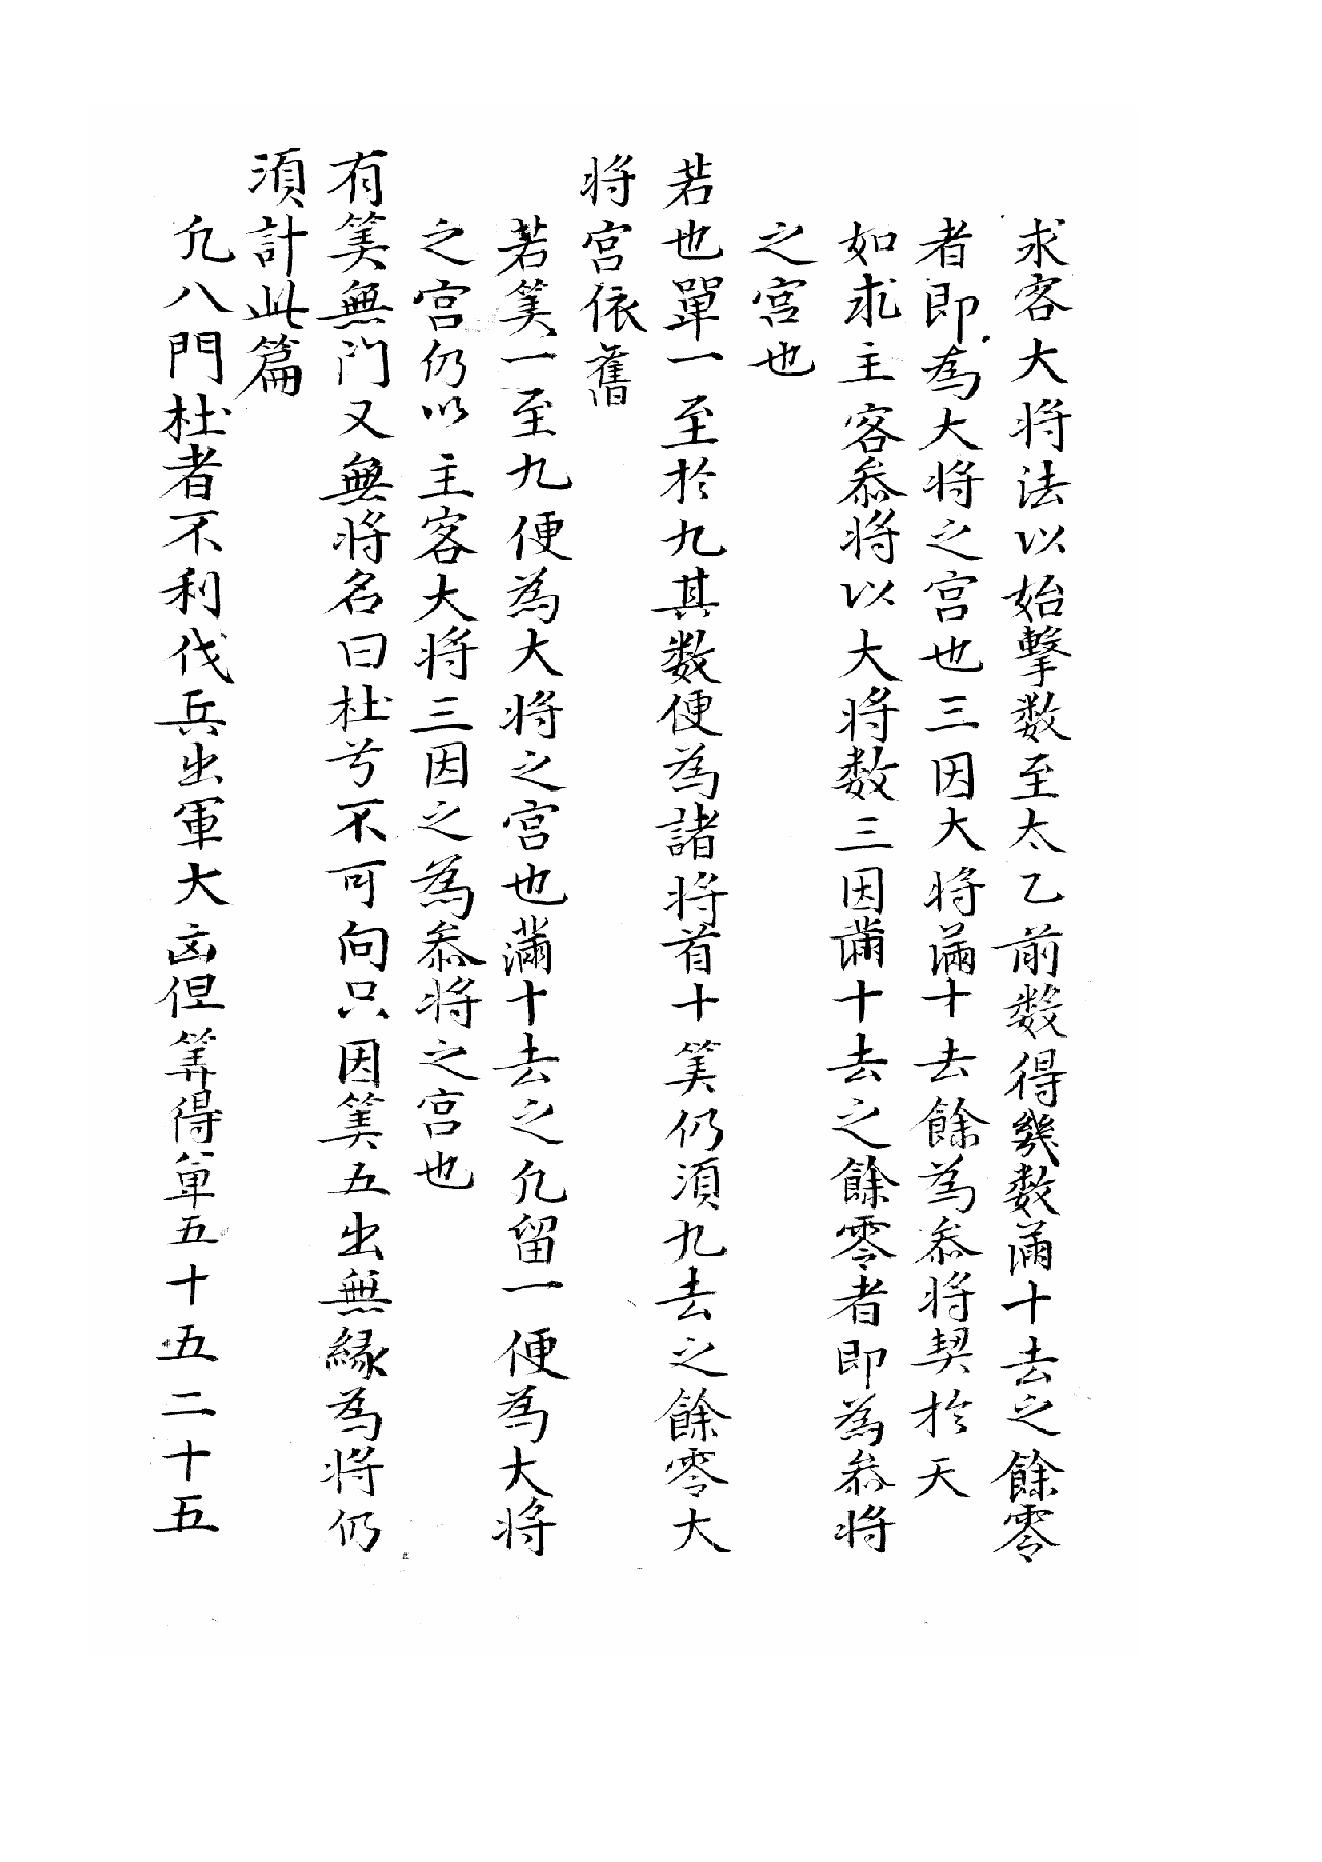 求客大将法以始擊数至太乙前数得幾数滿十去之餘零
者即為大将之宮也三因大将滿十去餘為叅将契於天
如求主客叅将以大将数三因滿十去之餘零者即為叅将
之宮也
若也單一至於九其数便為諸将首十筭仍須九去之餘零大
将宮依舊
若筭一至九便為大将之宮也滿十去之凢留一便為大将
之宮仍以主客大将三因之為叅将之宮也
有筭無门又無将名曰杜兮不可向只因筭五出無緣為将仍
須計此篇
凢八門杜者不利伐兵出軍大凶但筭得单五十五二十五